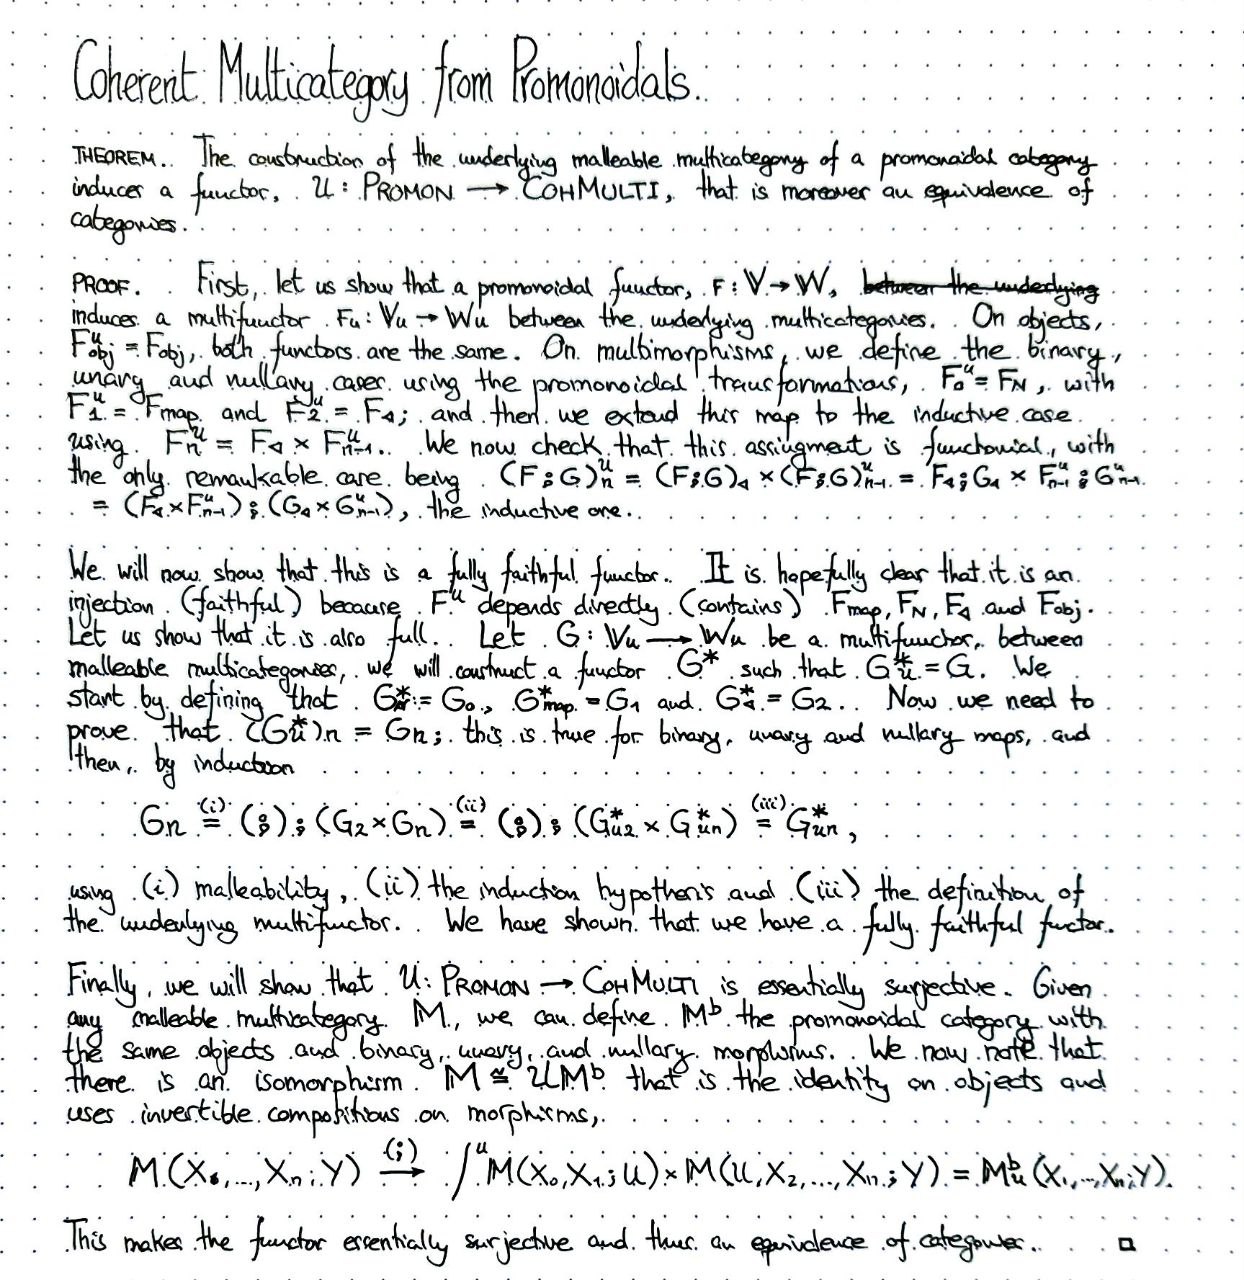 Coherent Multicategory from Promonoidals.
THEOREM. The construction of the underlying malleable multicategory of a promonoidal category
induces a functor, U : PROMON → COHMULTI, that is moreover an equivalence of
categories.
PROOF. First, let us show that a promonoidal functor, F : V → W, ~~between the underlying~~
induces a multifunctor Fu : Vu → Wu between the underlying multicategories. On objects,
F^u_obj = F_obj, both functors are the same. On multimorphisms, we define the binary,
unary and nullary cases using the promonoidal transformations, F^u_0 = F_N, with
F^u_1 = F_map and F^u_2 = F_◁; and then we extend this map to the inductive case
using F^u_n = F_◁ × F^u_{n-1}. We now check that this assignment is functorial, with
the only remarkable case being (F⨾G)^u_n = (F⨾G)_◁ × (F⨾G)^u_{n-1} = F_◁⨾G_◁ × F^u_{n-1}⨾G^u_{n-1}
= (F_◁ × F^u_{n-1})⨾(G_◁ × G^u_{n-1}), the inductive one.
We will now show that this is a fully faithful functor. It is hopefully clear that it is an
injection (faithful) because F^u depends directly (contains) F_map, F_N, F_◁ and F_obj.
Let us show that it is also full. Let G : Vu → Wu be a multifunctor between
malleable multicategories, we will construct a functor G* such that G*_u = G. We
start by defining that G*_N := G_0, G*_map = G_1 and G*_◁ = G_2. Now we need to
prove that (G*_u)_n = G_n; this is true for binary, unary and nullary maps, and
then, by induction
G_n (i)= (⨾)⨾(G_2 × G_n) (ii)= (⨾)⨾(G*_{u2} × G*_{un}) (iii)= G*_{un},
using (i) malleability, (ii) the induction hypothesis and (iii) the definition of
the underlying multifunctor. We have shown that we have a fully faithful fuctor.
Finally, we will show that U : PROMON → COHMULTI is essentially surjective. Given
any malleable multicategory M, we can define M^b the promonoidal category with
the same objects and binary, unary, and nullary morphisms. We now note that
there is an isomorphism M ≅ UM^b that is the identity on objects and
uses invertible compositions on morphisms,
M(X_0,...,X_n; Y) (⨾)→ ∫^u M(X_0,X_1; U) × M(U,X_2,...,X_n; Y) = M^b_u(X_1,...,X_n; Y).
This makes the functor essentially surjective and thus an equivalence of categories. □